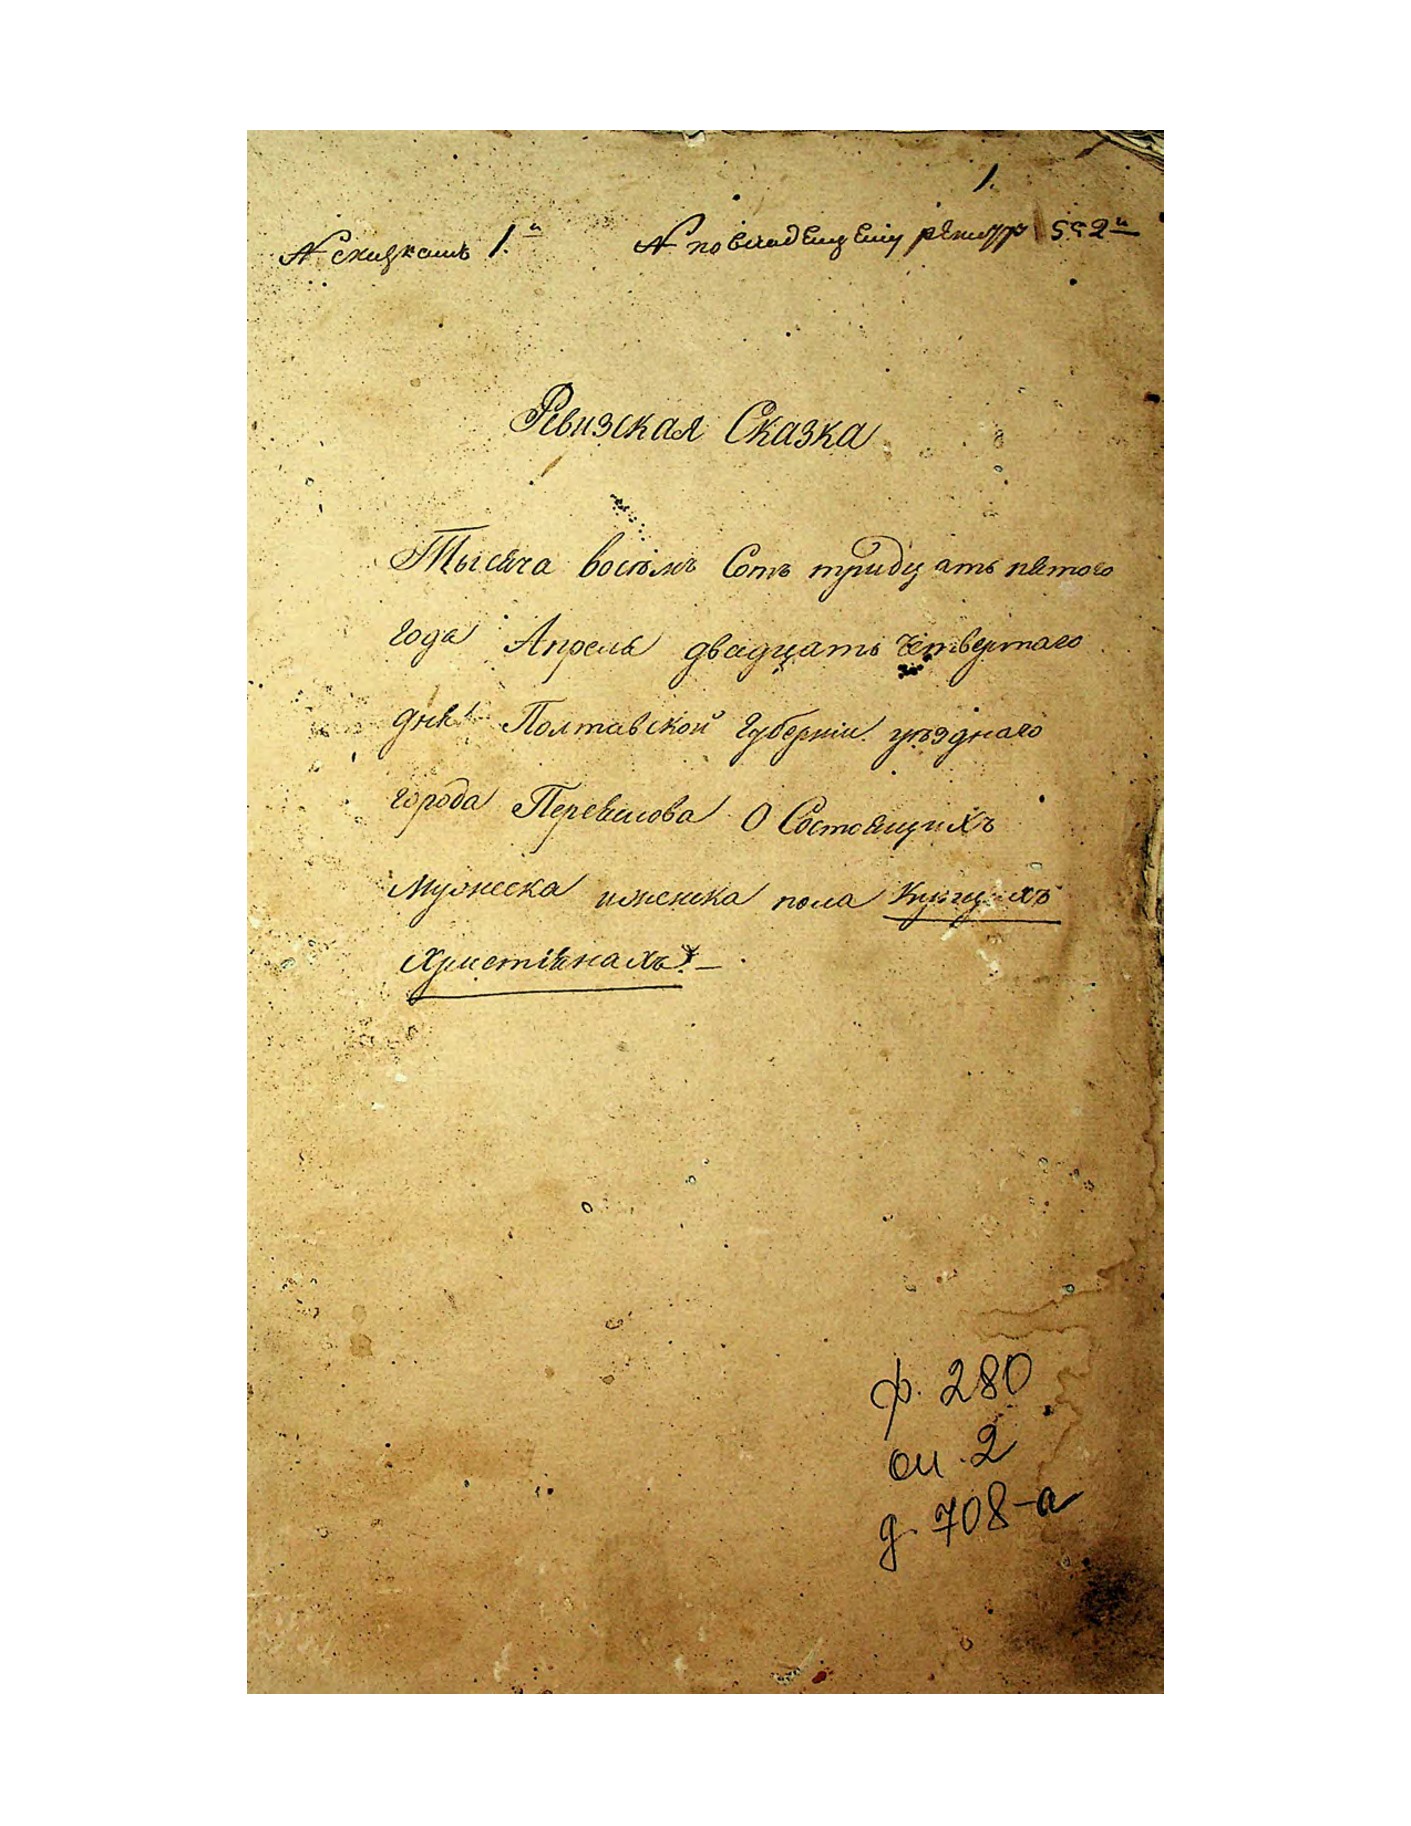 1.
№ сказкамъ 1.й № повладѣнному реестру 552й
Ревизская Сказка
Тысяча восѣмъ Сотъ тридцать пятого
года Апреля двадцать четвертаго
дня Полтавской Губерніи уѣзднаго
города Переяслова О Состоящихъ
Мужеска иженска пола
Христіянахъ.
ф. 280
оп. 2
д. 708-а